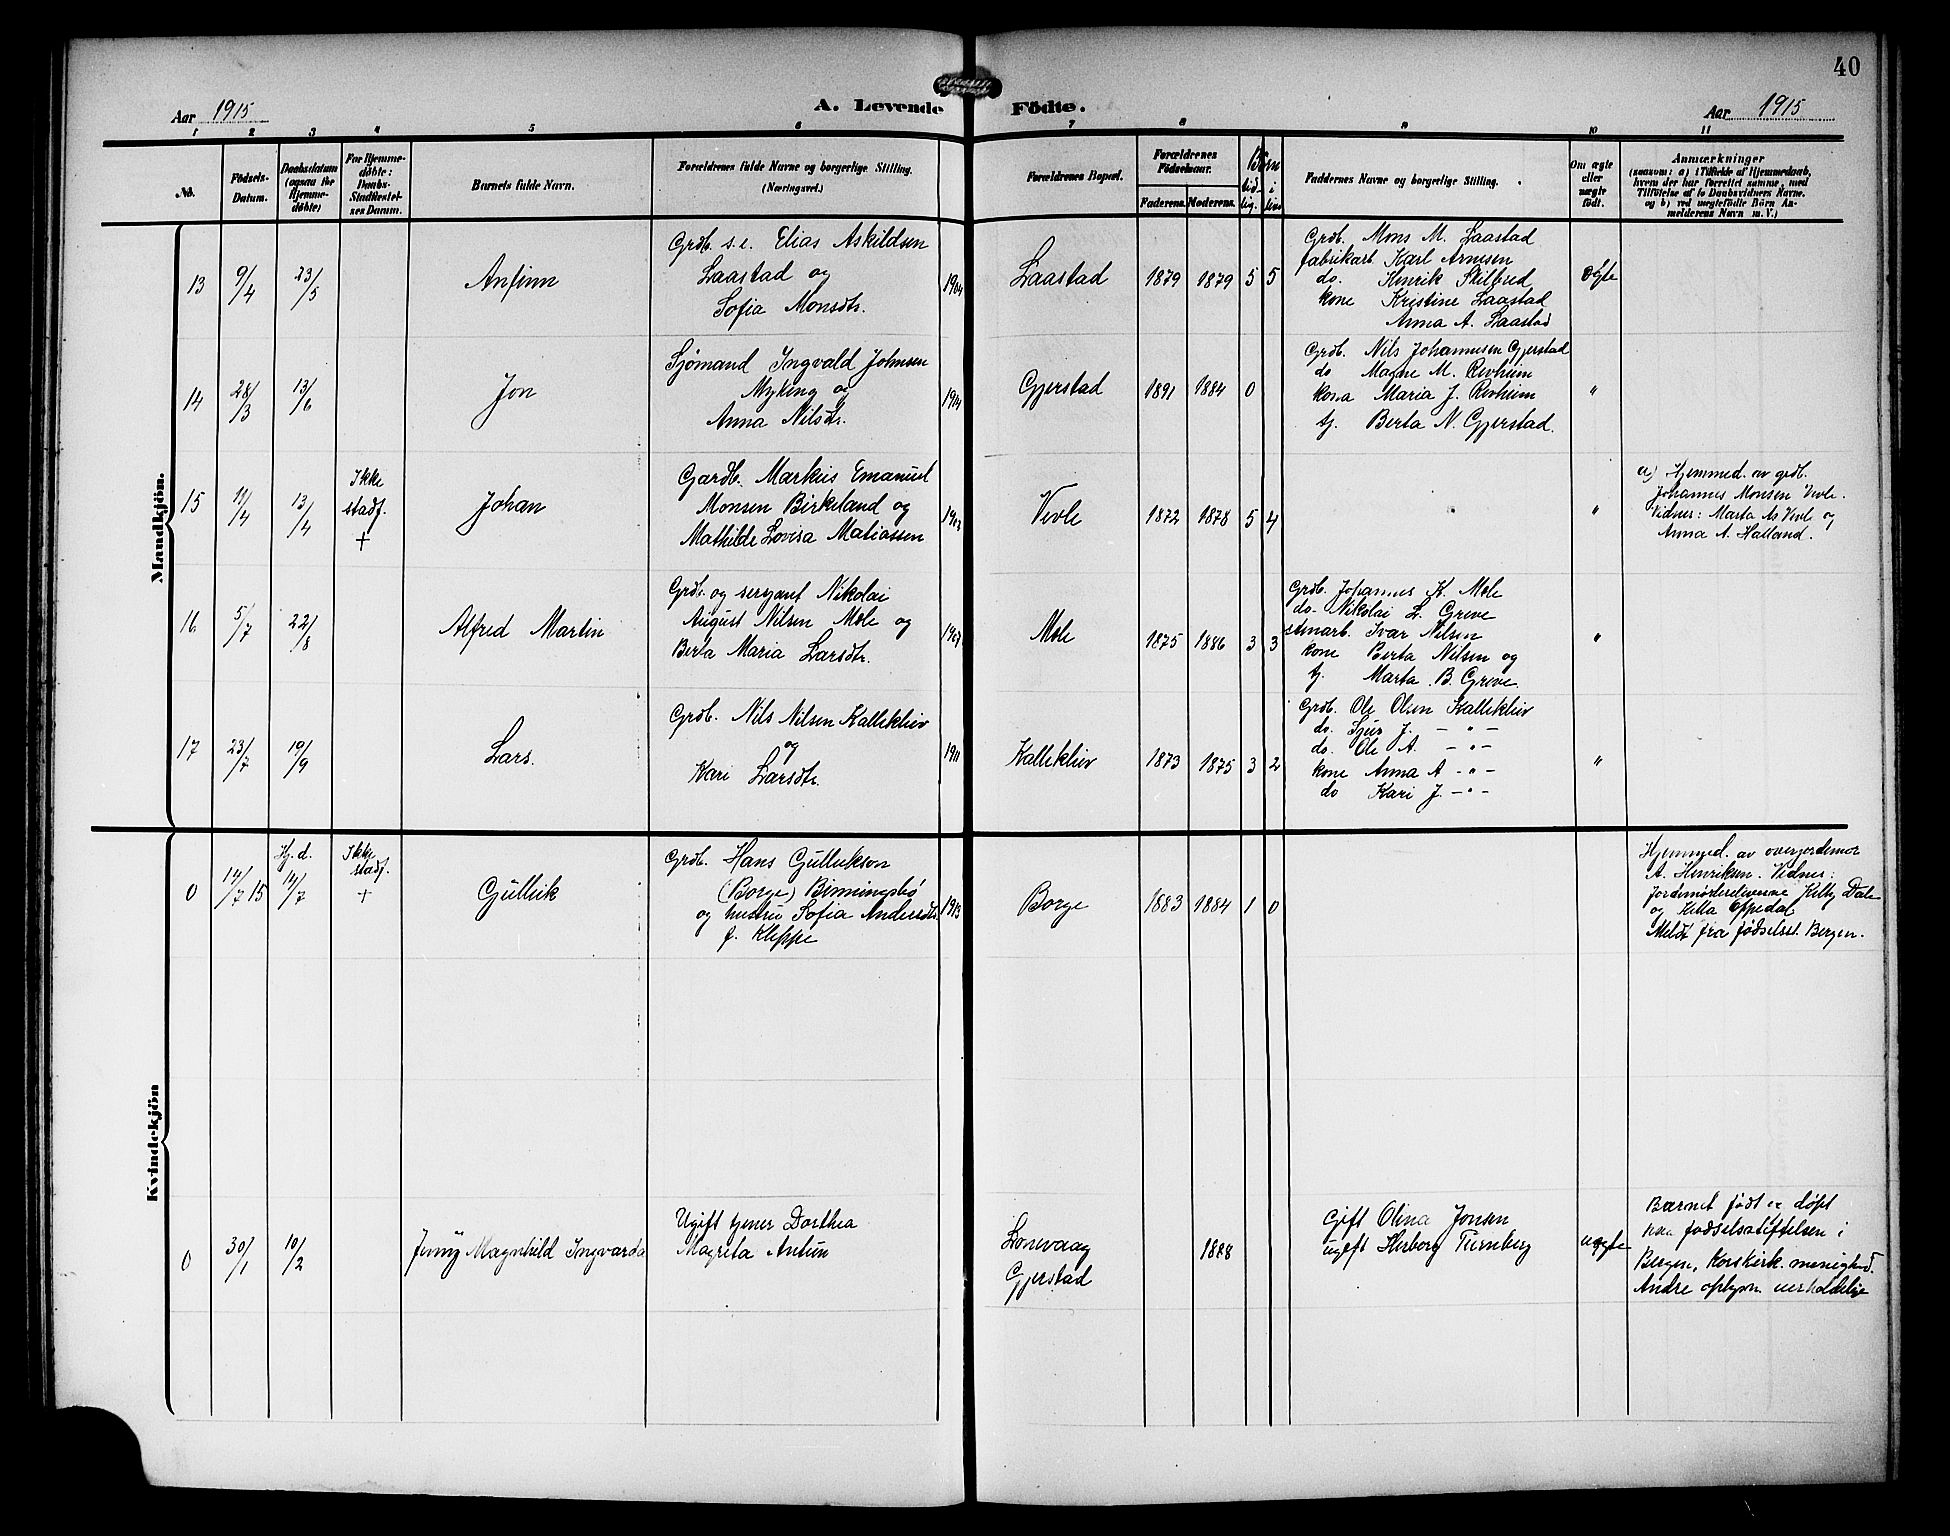 40
Aar 1915
A. Levende
Födte.
Aar 1915
1 2 3 4 5 6 7 8 9 10 11
No.
Födsels-
Datum.
Daabsdatum
(ogsaa for
Hjemme-
döbte)
For Hjemme-
döbte:
Daabs-
Stadfæstel-
ses Datum.
Barnets fulde Navn.
Forældrenes fulde Navne og borgerlige Stilling.
(Næringsvei.)
Forældrenes Bopæl.
Forældrenes
Födselsaar.
Faderens.
Moderens.
Börn
tid-
lig.
i
live
Faddernes Navne og borgerlige Stilling.
Om ægte
eller
uægte
födt.
Anmærkninger
(saasom: a) i Tilfælde af Hjemmedaab,
hvem der har forrettet samme, med
Tilföielse af to Daabsvidners Navne.
og b) ved uægtefödte Börn An-
melderens Navn m. V.)
Mandkjön.
13
9/4
23/5
Anfinn
Grdb. s.e. Elias Askildsen
Laastad og
Sofia Monsdtr.
1904
Laastad
1879 1879 5 5
Grdb. Mons M. Laastad
fabrikarb. Karl Arnesen
do. Henrik
kone Kristine Laastad
Anna A. Laastad
ægte
14
28/3
13/6
Jon
Sjömand Ingvald Johnsen
Myking og
Anna Nilsdtr.
1914
Gjerstad
1891 1884 0
Grdb. Nils Johannesen Gjerstad
do Magne M. Revheim
kona Maria J. Revheim
tj. Berta N. Gjerstad.
"
15
11/4
13/4
Ikke
stadf.
+
Johan
Gardb. Markus Emanuel
Monsen Birkeland og
Mathilde Lovisa Matiassen
Vevle
1872 1878 5 4
"
a) Hjemmed. av grdb.
Johannes Monsen Vevle.
Vidner: Marta As Vevle og
Anna A. Halland.
16
5/7
22/8
Alfred Martin
Grdb. og sersjant Nikolai
August Nilsen Mæle og
Berta Maria Larsdtr.
1907
Mæle
1875 1886 3 3
Grdb. Johannes K. Mæle
do. Nikolai L. Greve
stenarb. Ivar Nilsen
kone Berta Nilsen og
tj. Marta B. Greve.
"
17
23/7
19/9
Lars.
Grdb. Nils Nilsen Kallekleiv
og
Kari Larsdtr.
1911
Kallekleiv
1873 1875 3 2
Grdb. Ole Olsen Kallekleiv
do. Sjur J. — " —
do. Ole A. — " —
kone Anna A — " —
do Kari J. — " —
"
Kvindekjön
0
14/7 15
Hj.d.
14/7
Ikke
stadf.
+
Gullvik
Grdb. Hans Gulleikson
(Borge) Binningsbö
og hustru Sofia Andersdtr.
f. Kleppe
1913
Borge
1883 1884 1 0
Hjemmed. av overjordemor
A. Henriksen. Vidner:
jordmorelevene Kelly Dale
og Oppedal
Meldt fra födselsst. Bergen.
0
30/1
10/2
Jenny Magnhild Ingvarda
Ugift tjener Dorthea
Magreta Antun
Lonevaag
Gjerstad
1888
Gift Olina Jensen
ugift Herborg Turnberg
uægte
Barnet födt og döpt
paa födselsstiftelsen i
Bergen, Korskirk. menighed.
Andre oplysn. uerholdelige